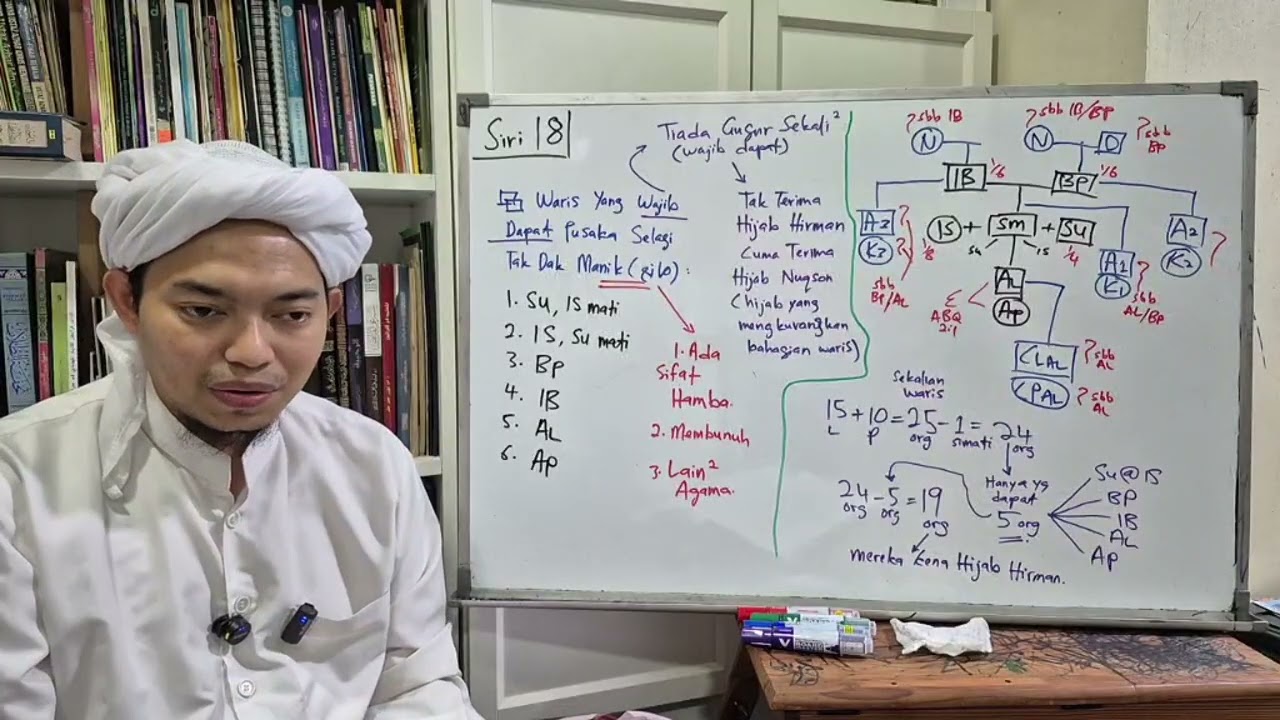 Siri 18
Waris Yang Wajib
Dapat Pusaka Selagi
Tak Dak Manik (gilo):
1. Su, IS mati
2. IS, Su mati
3. BP
4. IB
5. AL
6. AP
Tiada Gugur Sekali²
(wajib dapat)
Tak Terima
Hijab Hirman
Cuma Terima
Hijab Nuqson
(hijab yang
mengkurangkan
bahagian waris)
1. Ada
Sifat
Hamba.
2. Membunuh
3. Lain²
Agama.
? sbb IB
N
? sbb IB/BP
N
D
? sbb
BP
IB 1/6
BP 1/6
A2
K2
?
?
sbb
BP/AL
IS + Sm + Su
1/8
su
is
1/4
A1
K1
?
sbb
AL/BP
A2
K2
?
AL
AP
ABQ
2:1
CLAL
? sbb
AL
CPAL
? sbb
AL
Sekalian
waris
15 + 10 = 25 - 1 = 24
L P org simati org
24 - 5 = 19
org org org
Hanya yg
dapat
5 org
Su @ IS
BP
IB
AL
AP
mereka kena Hijab Hirman.